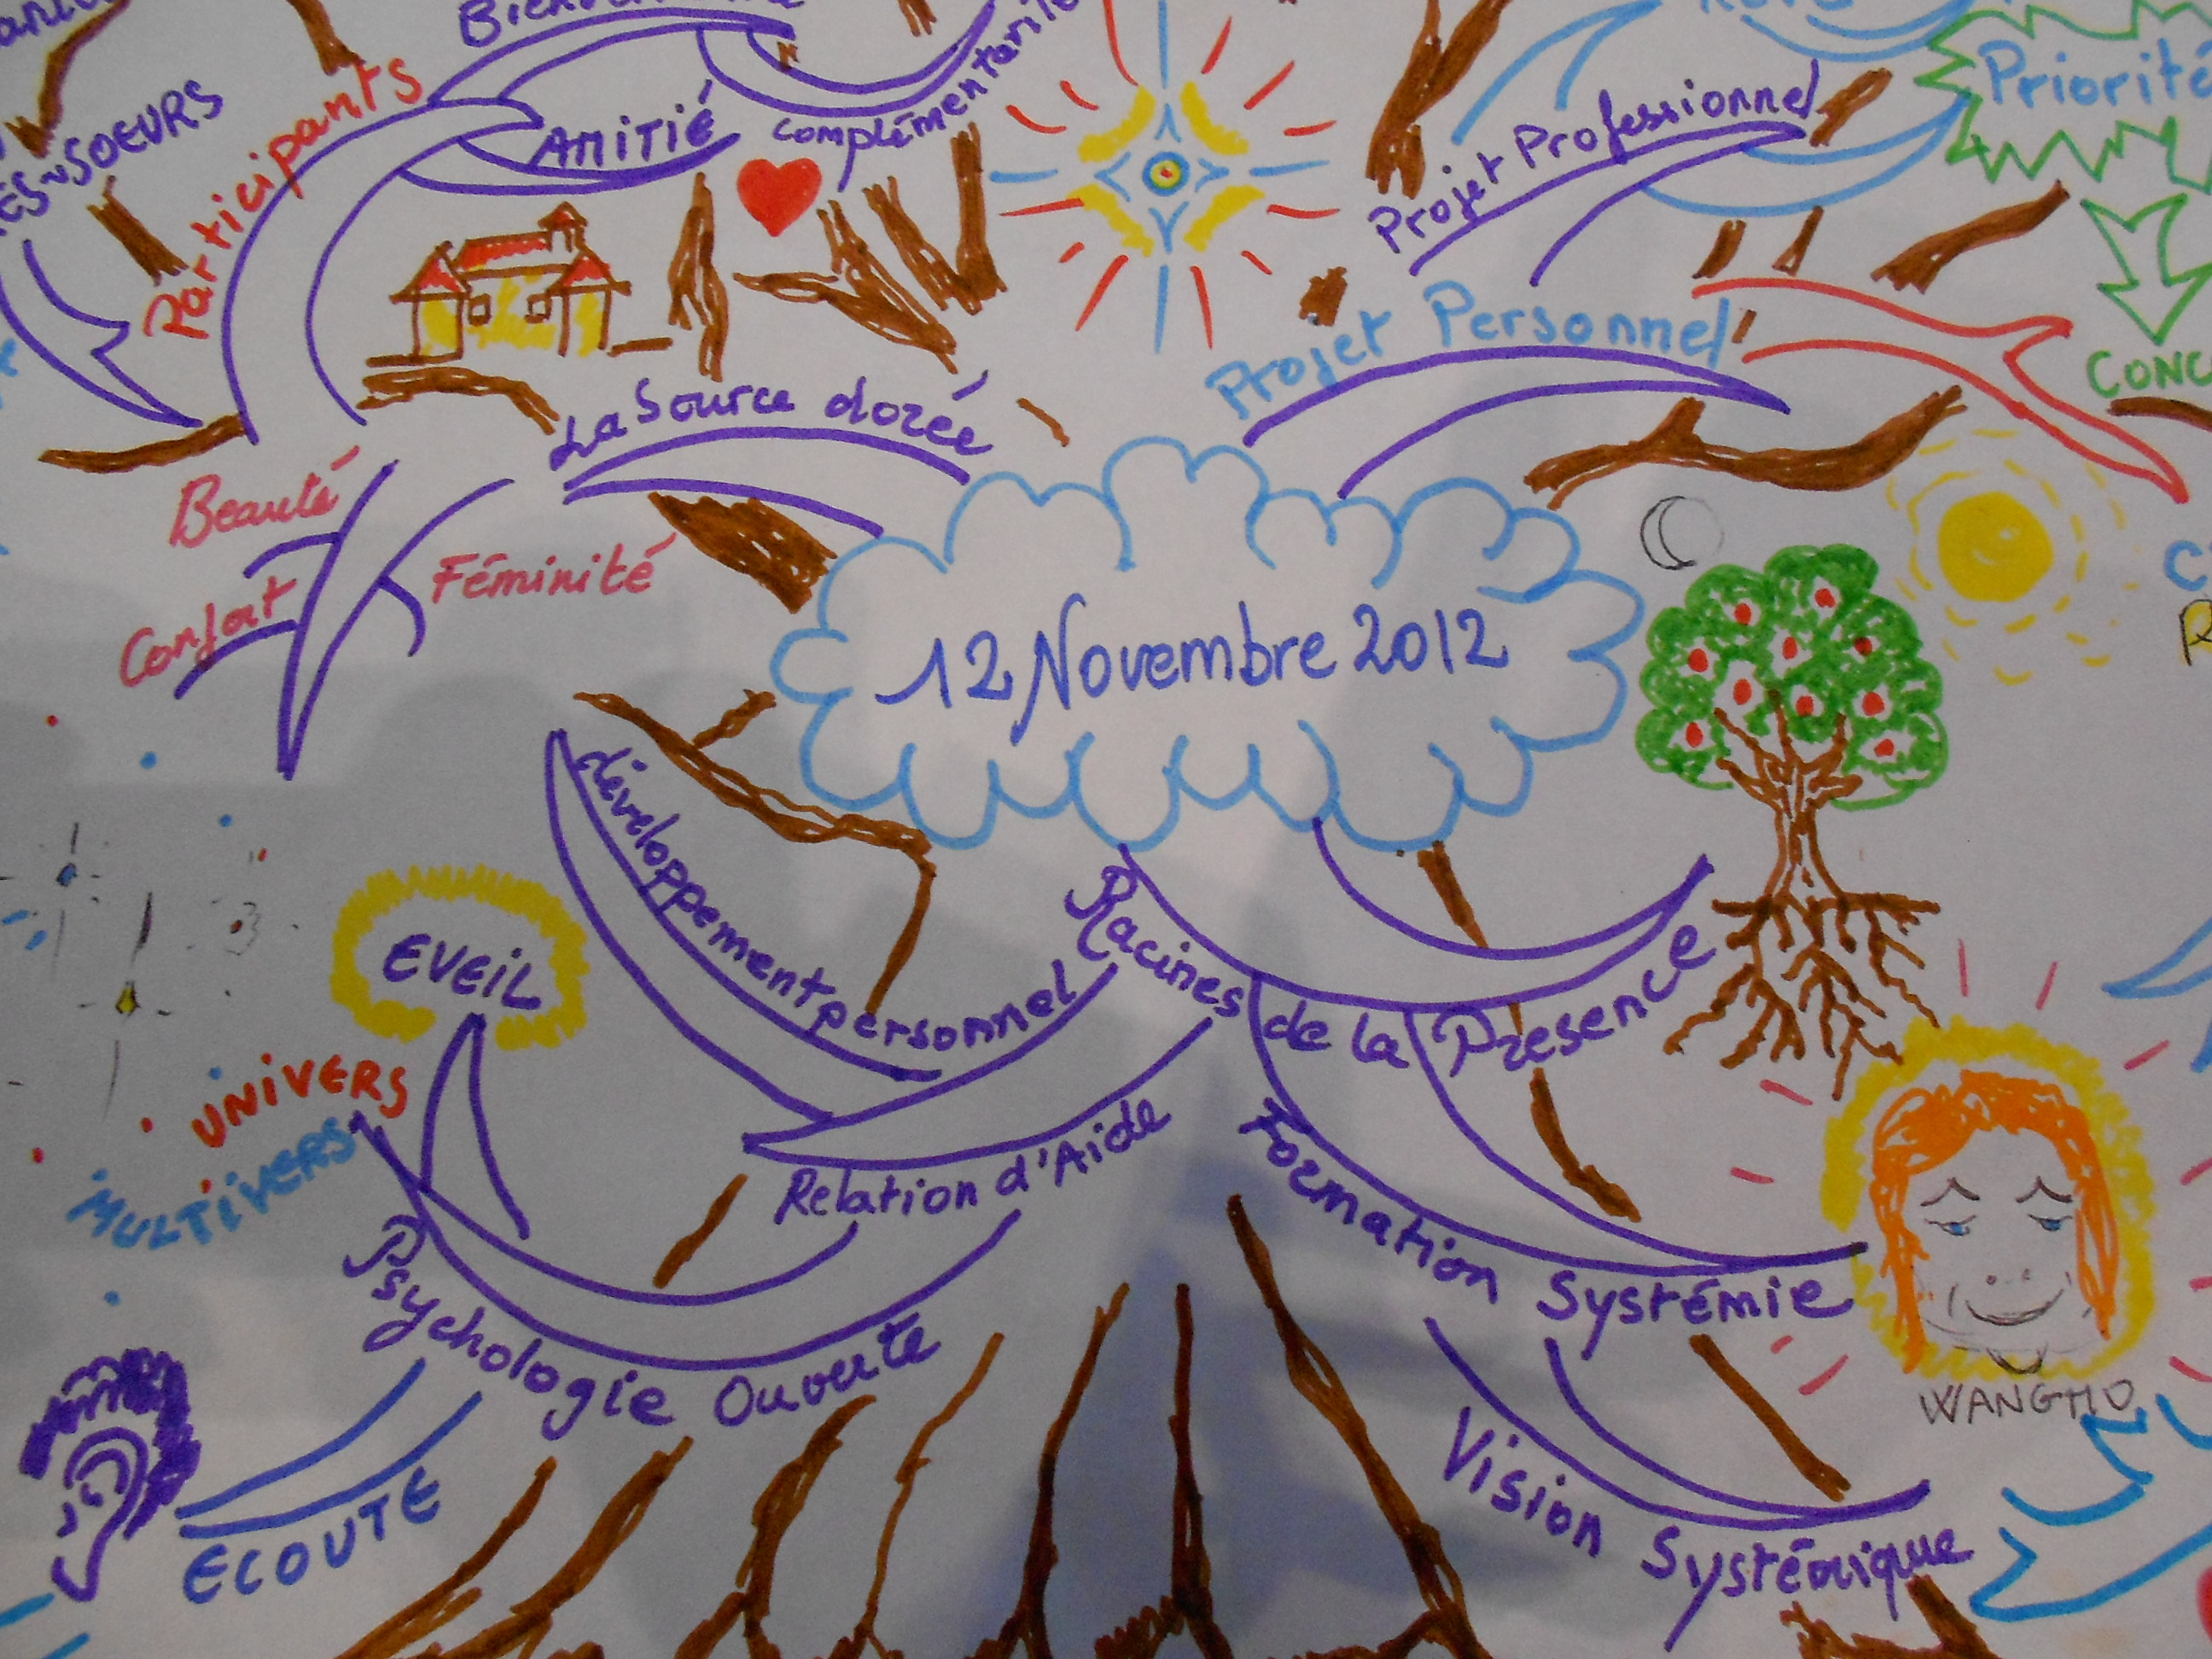 SOEURS
Participants
AMITIÉ
complémentarité
Projet Professionnel
Priorité
Projet Personnel
La Source dorée
Beauté
Confort
Féminité
12 Novembre 2012
développement personnel
Racines de la Présence
EVEIL
UNIVERS
MULTIVERS
Relation d'Aide
Formation Systémie
Psychologie Ouverte
WANGMO
ECOUTE
Vision Systémique